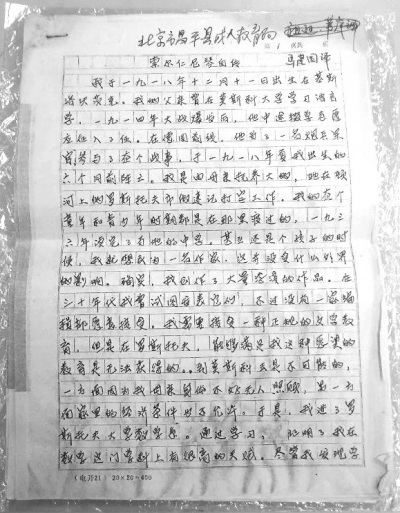 北京市昌平县成人教育局
索尔仁尼琴自传
马建国译
我于一九一八年十二月十一日出生在基斯
洛沃茨克。我的父亲曾在莫斯科大学学习语言
学,一九一四年大战爆发后,他中途辍学志愿
应征入了伍。在德国前线,他当了一名炮兵军
官参与了整个战事,于一九一八年夏我出生的
六个月前死亡。我是由母亲抚养大的,她在顿
河上的罗斯托夫市做速记打字工作。我的整个
童年和青少年时期都是在那里度过的,一九三
六年读完了当地的中学。甚至还是个孩子的时
候,我就想成为一名作家,这并没有什么外界
的影响。确实,我创作了大量荒谬的作品。在
三十年代我曾试图发表它们,不过没有一家编
辑部愿意接受。我需要接受一种正规的文学教
育,但是在罗斯托夫,能够满足我这种愿望的
教育是无法获得的。到莫斯科去是不可能的,
一方面因为我母亲身体不好无人照顾,另一方
面家里的经济条件也不允许。于是,我进了罗
斯托夫大学数学系。通过学习,证明了我在
数学这门学科上有很高的天赋。尽管我发现学
(电开21) 20×20=400